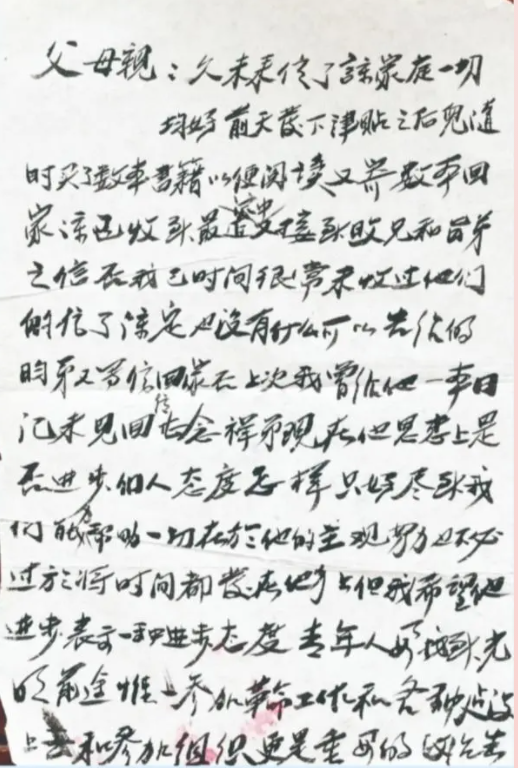 父母親：久未来信了諒家庭一切
均好前天發下津貼之后兒隨
时买了数本書籍以便阅读又寄数本回
家諒已收到最近家中又接到政兄和昌弟
之信否我已时间很常未收过他们
的信了諒定也没有什么可以告给的
昀弟又写信回家否上次我曾给他一本日
记未见回信 念祥弟現在他思想上是
否进步们人态度怎样只好尽到我
们的能力帮助一切在於他的主观努力也不必
过於将时间都發在他身上但我希望他
进步表示一种进步态度青年人要找到光
明前途惟一参加革命工作和各种建設
上去和参加组织更是重要的